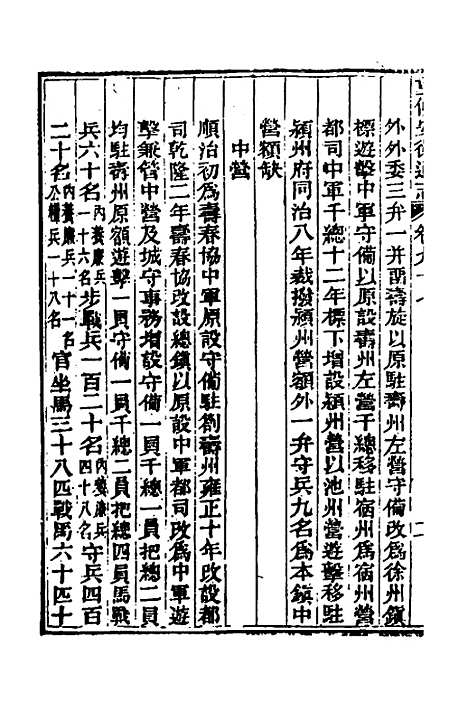 外外委三弁一并留壽旋以原駐壽州左營守備改爲徐州鎮
標遊擊中軍守備以原設壽州左營千總移駐宿州爲宿州營
都司中軍千總十二年標下增設潁州營以池州營遊擊移駐
潁州府同治八年裁撥潁州營額外一弁守兵九名爲本鎮中
營額缺
中營
順治初爲壽春協中軍原設守備駐劄壽州雍正十年改設都
司乾隆二年壽春協改設總鎮以原設中軍都司改爲中軍遊
擊兼管中營及城守事務增設守備一員千總一員把總二員
均駐壽州原額遊擊一員守備一員千總二員把總四員馬戰
兵六十名內養廉兵一十六名步戰兵一百二十名內養廉兵四十八名守兵四百
二十名內養廉兵一十一名公糧兵一十八名官坐馬三十八匹戰馬六十四十